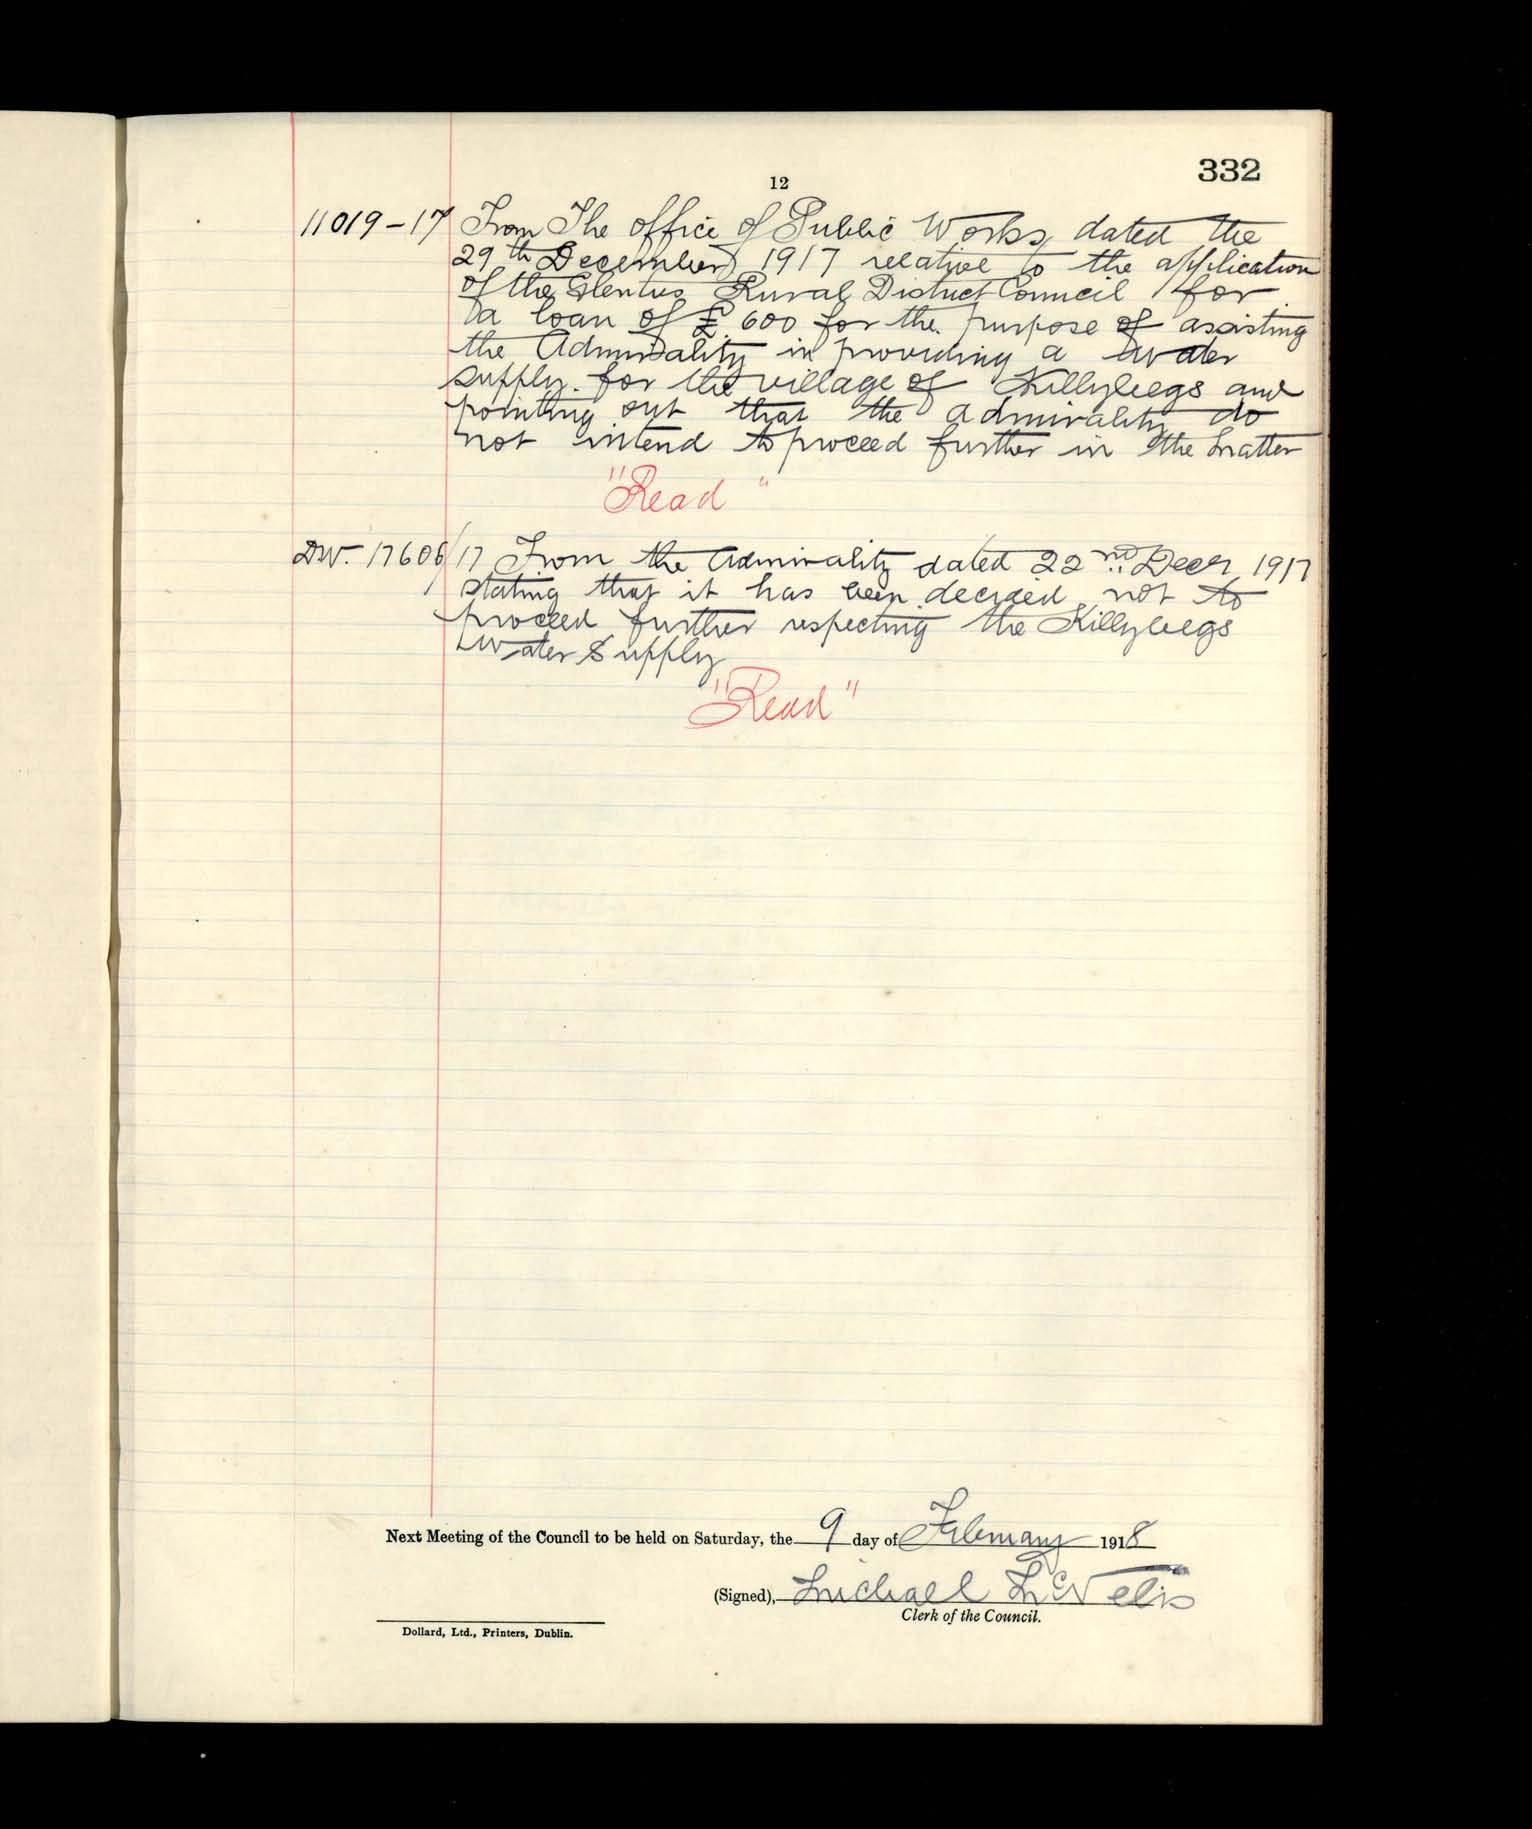 332
12
11019-17 From The office of Public Works dated the
29th December 1917 relative to the application
of the Glenties Rural District Council for
a loan of £600 for the purpose of assisting
the Admirality in providing a water
supply for the village of Killybegs and
pointing out that the admirality do
not intend to proceed further in the matter
"Read"
DW. 17608/17 From the Admirality dated 22nd Decr 1917
stating that it has been decided not to
proceed further respecting the Killybegs
Water Supply
"Read"
Next Meeting of the Council to be held on Saturday, the 9 day of February 1918
(Signed), Michael McNelis
Clerk of the Council.
Dollard, Ltd., Printers, Dublin.